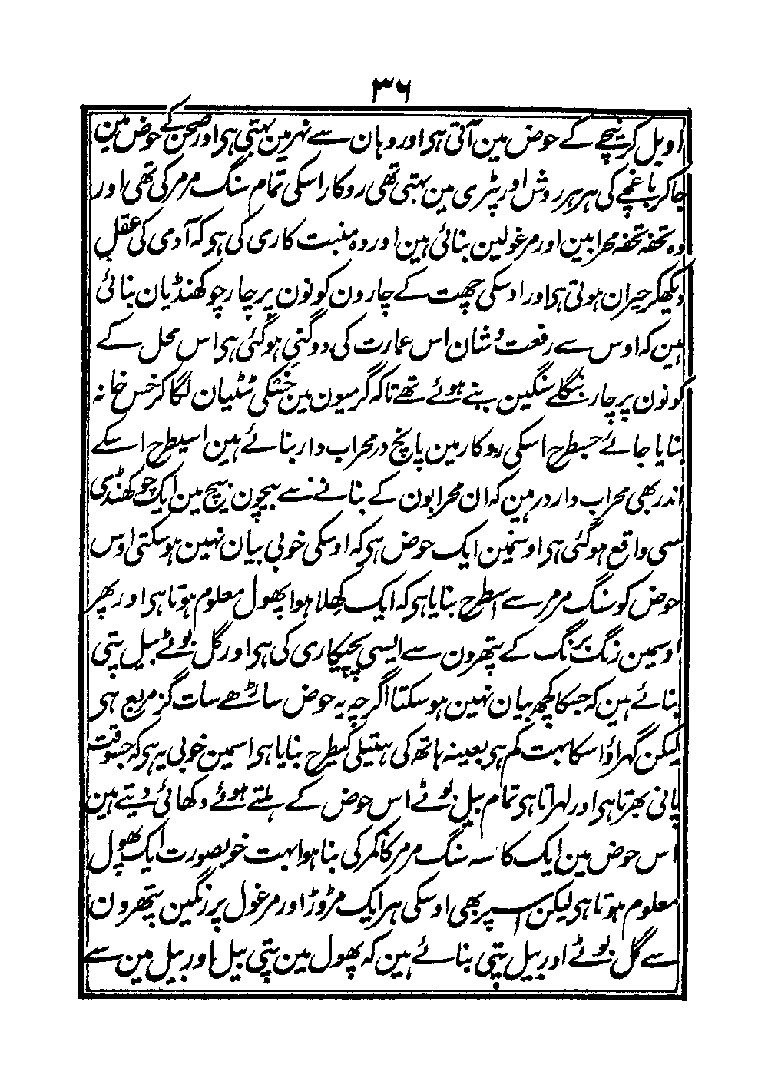 ۳۶
اوبل کر نیچے کے حوض مین آتی ہی اور وہان سے نہر مین بہتی ہی اور صحن کے حوض مین
جا کر باغچے کی ہر ہر روش اور پٹری مین بہتی تھی روکار اسکی تمام سنگ مرمر کی تھی اور
وہ تحفہ تحفہ محرابین اور مرغولین بنائی ہین اور وہ منبت کاری کی ہو کہ آدمی کی عقل
دیکھکر حیران ہوتی ہی اور اوسکی چھت کے چارون کونون پر چار چوکھنڈیان بنائی
ہین کہ اوس سے رفعت و شان اس عمارت کی دوگنی ہوگئی ہی اس محل کے
کونون پر چار بنگلے سنگین بنے ہوئے تھے تاکہ گرمیون مین خنکی ٹٹیان لگا کر خس خانہ
بنایا جائے جسطرح اسکی روکار مین پانچ در محراب دار بنائے ہین اسیطرح اسکے
اندر بھی محراب دار در ہین کہ ان محرابون کے بنانے سے بیچون بیچ مین ایک چوکھنڈی
سی واقع ہوگئی ہی اوسمین ایک حوض ہی کہ اوسکی خوبی بیان نہین ہوسکتی اوس
حوض کو سنگ مرمر سے اسطرح بنایا ہی کہ ایک کھلا ہوا پھول معلوم ہوتا ہی اور پھر
اوسمین رنگ برنگ کے پتھرون سے ایسی پچیکاری کی ہی اور گل بوٹے بیل پتی
بنائے ہین کہ جسکا کچھ بیان نہین ہوسکتا اگرچہ یہ حوض ساڑھے سات گز مربع ہی
لیکن گہراؤ اسکا بہت کم ہی بعینہ ہاتھ کی ہتیلی کیطرح بنایا ہی اسمین خوبی یہ ہی کہ جسوقت
پانی بھرتا ہی اور لہراتا ہی تمام بیل بوٹے اس حوض کے ہلتے ہوئے دکھائی دیتے ہین
اس حوض مین ایک کاسہ سنگ مرمر کا نمکرکی بنا ہوا بہت خوبصورت ایک پھول
معلوم ہوتا ہی لیکن اسپر بھی اوسکی ہر ایک مڑوڑ اور مرغول پر رنگین پتھرون
سے گل بوٹے اور بیل پتی بنائے ہین کہ پھول مین پتی بیل اور بیل مین سے